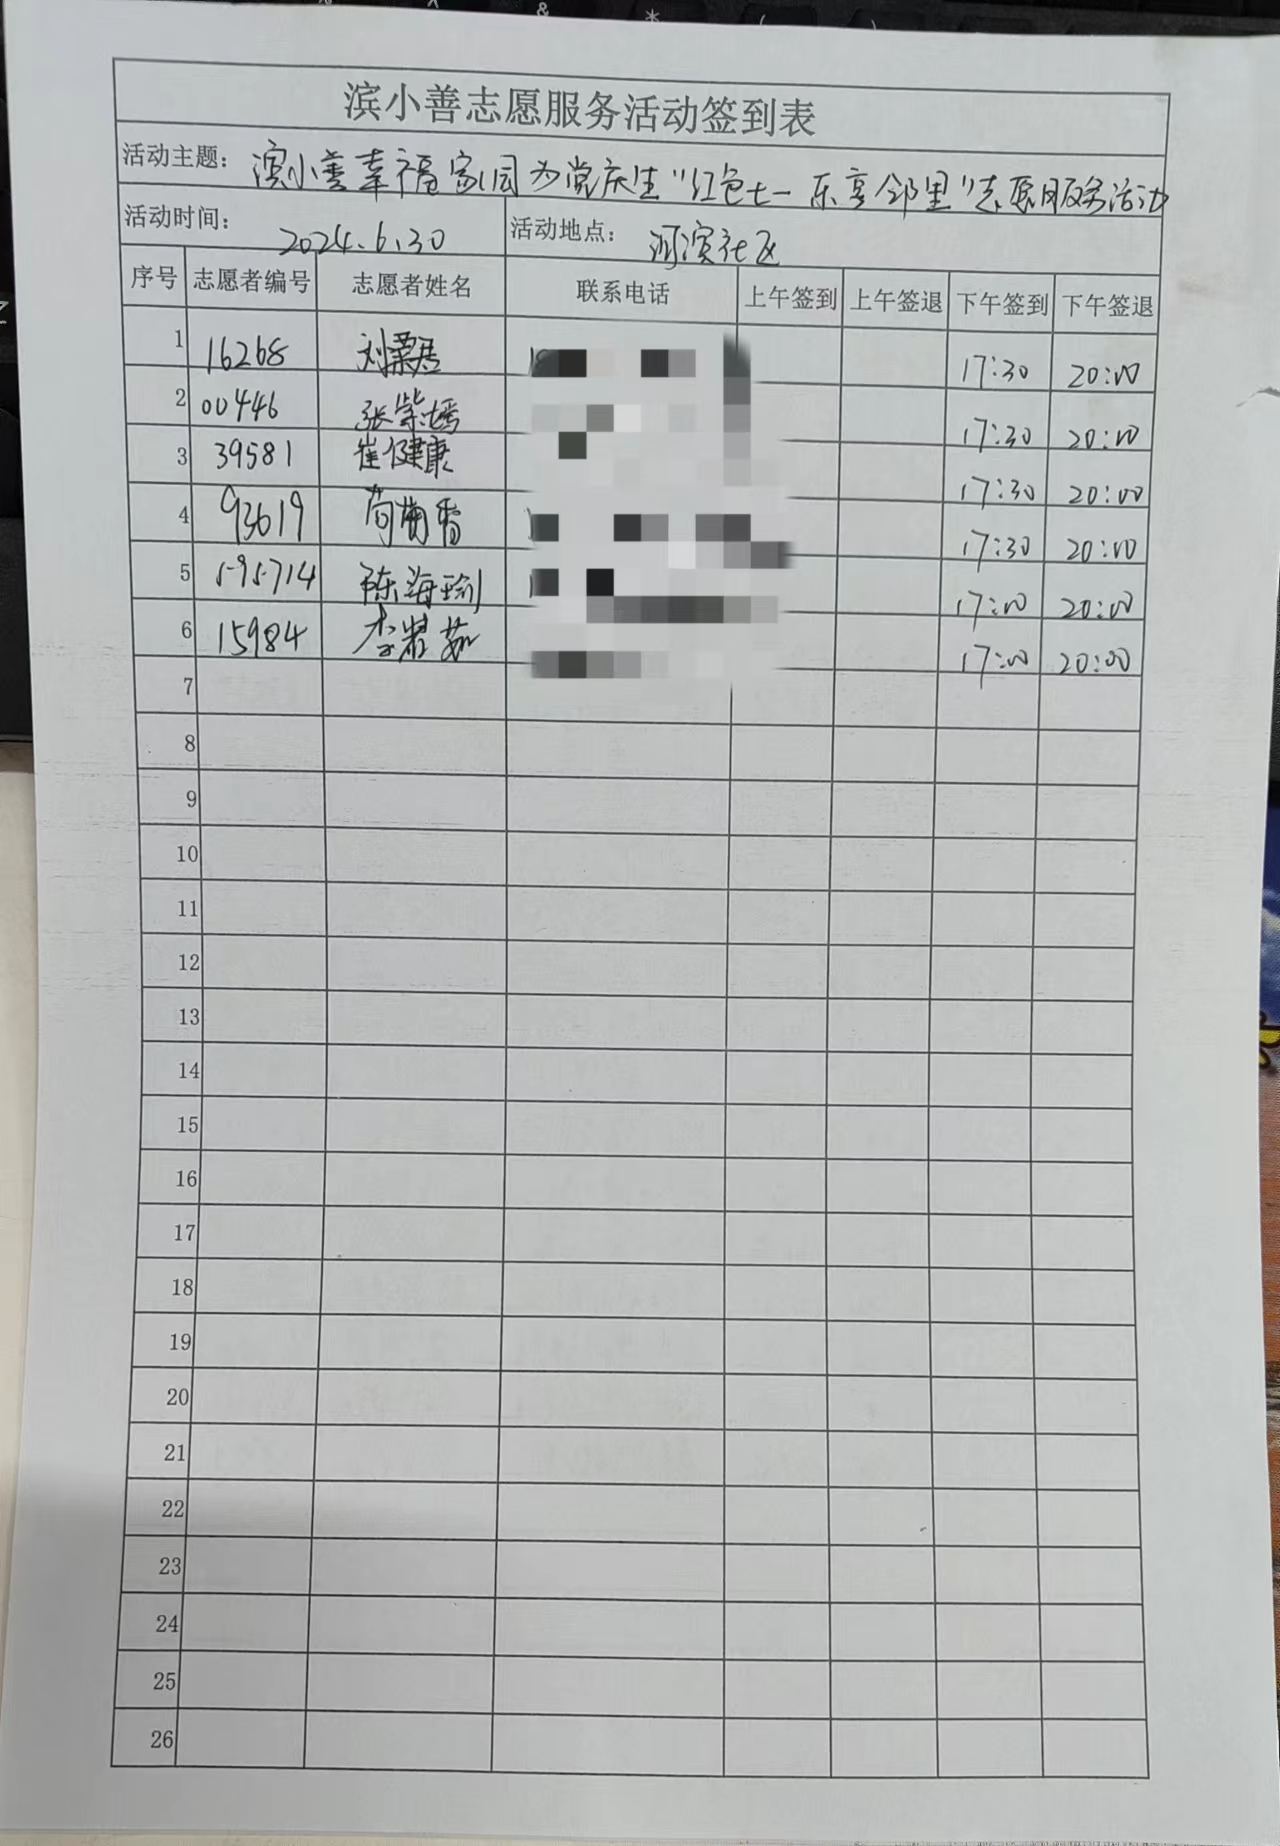 滨小善志愿服务活动签到表
活动主题： 滨小善幸福家园为党庆生"红色七一 乐享邻里"志愿服务活动
活动时间： 2024.6.30 活动地点： 河滨社区
序号 志愿者编号 志愿者姓名 联系电话 上午签到 上午签退 下午签到 下午签退
1 16268 17:30 20:00
2 00446 17:30 20:00
3 39581 崔健康 17:30 20:00
4 93619 17:30 20:00
5 595714 17:00 20:00
6 15984 17:00 20:00
7
8
9
10
11
12
13
14
15
16
17
18
19
20
21
22
23
24
25
26